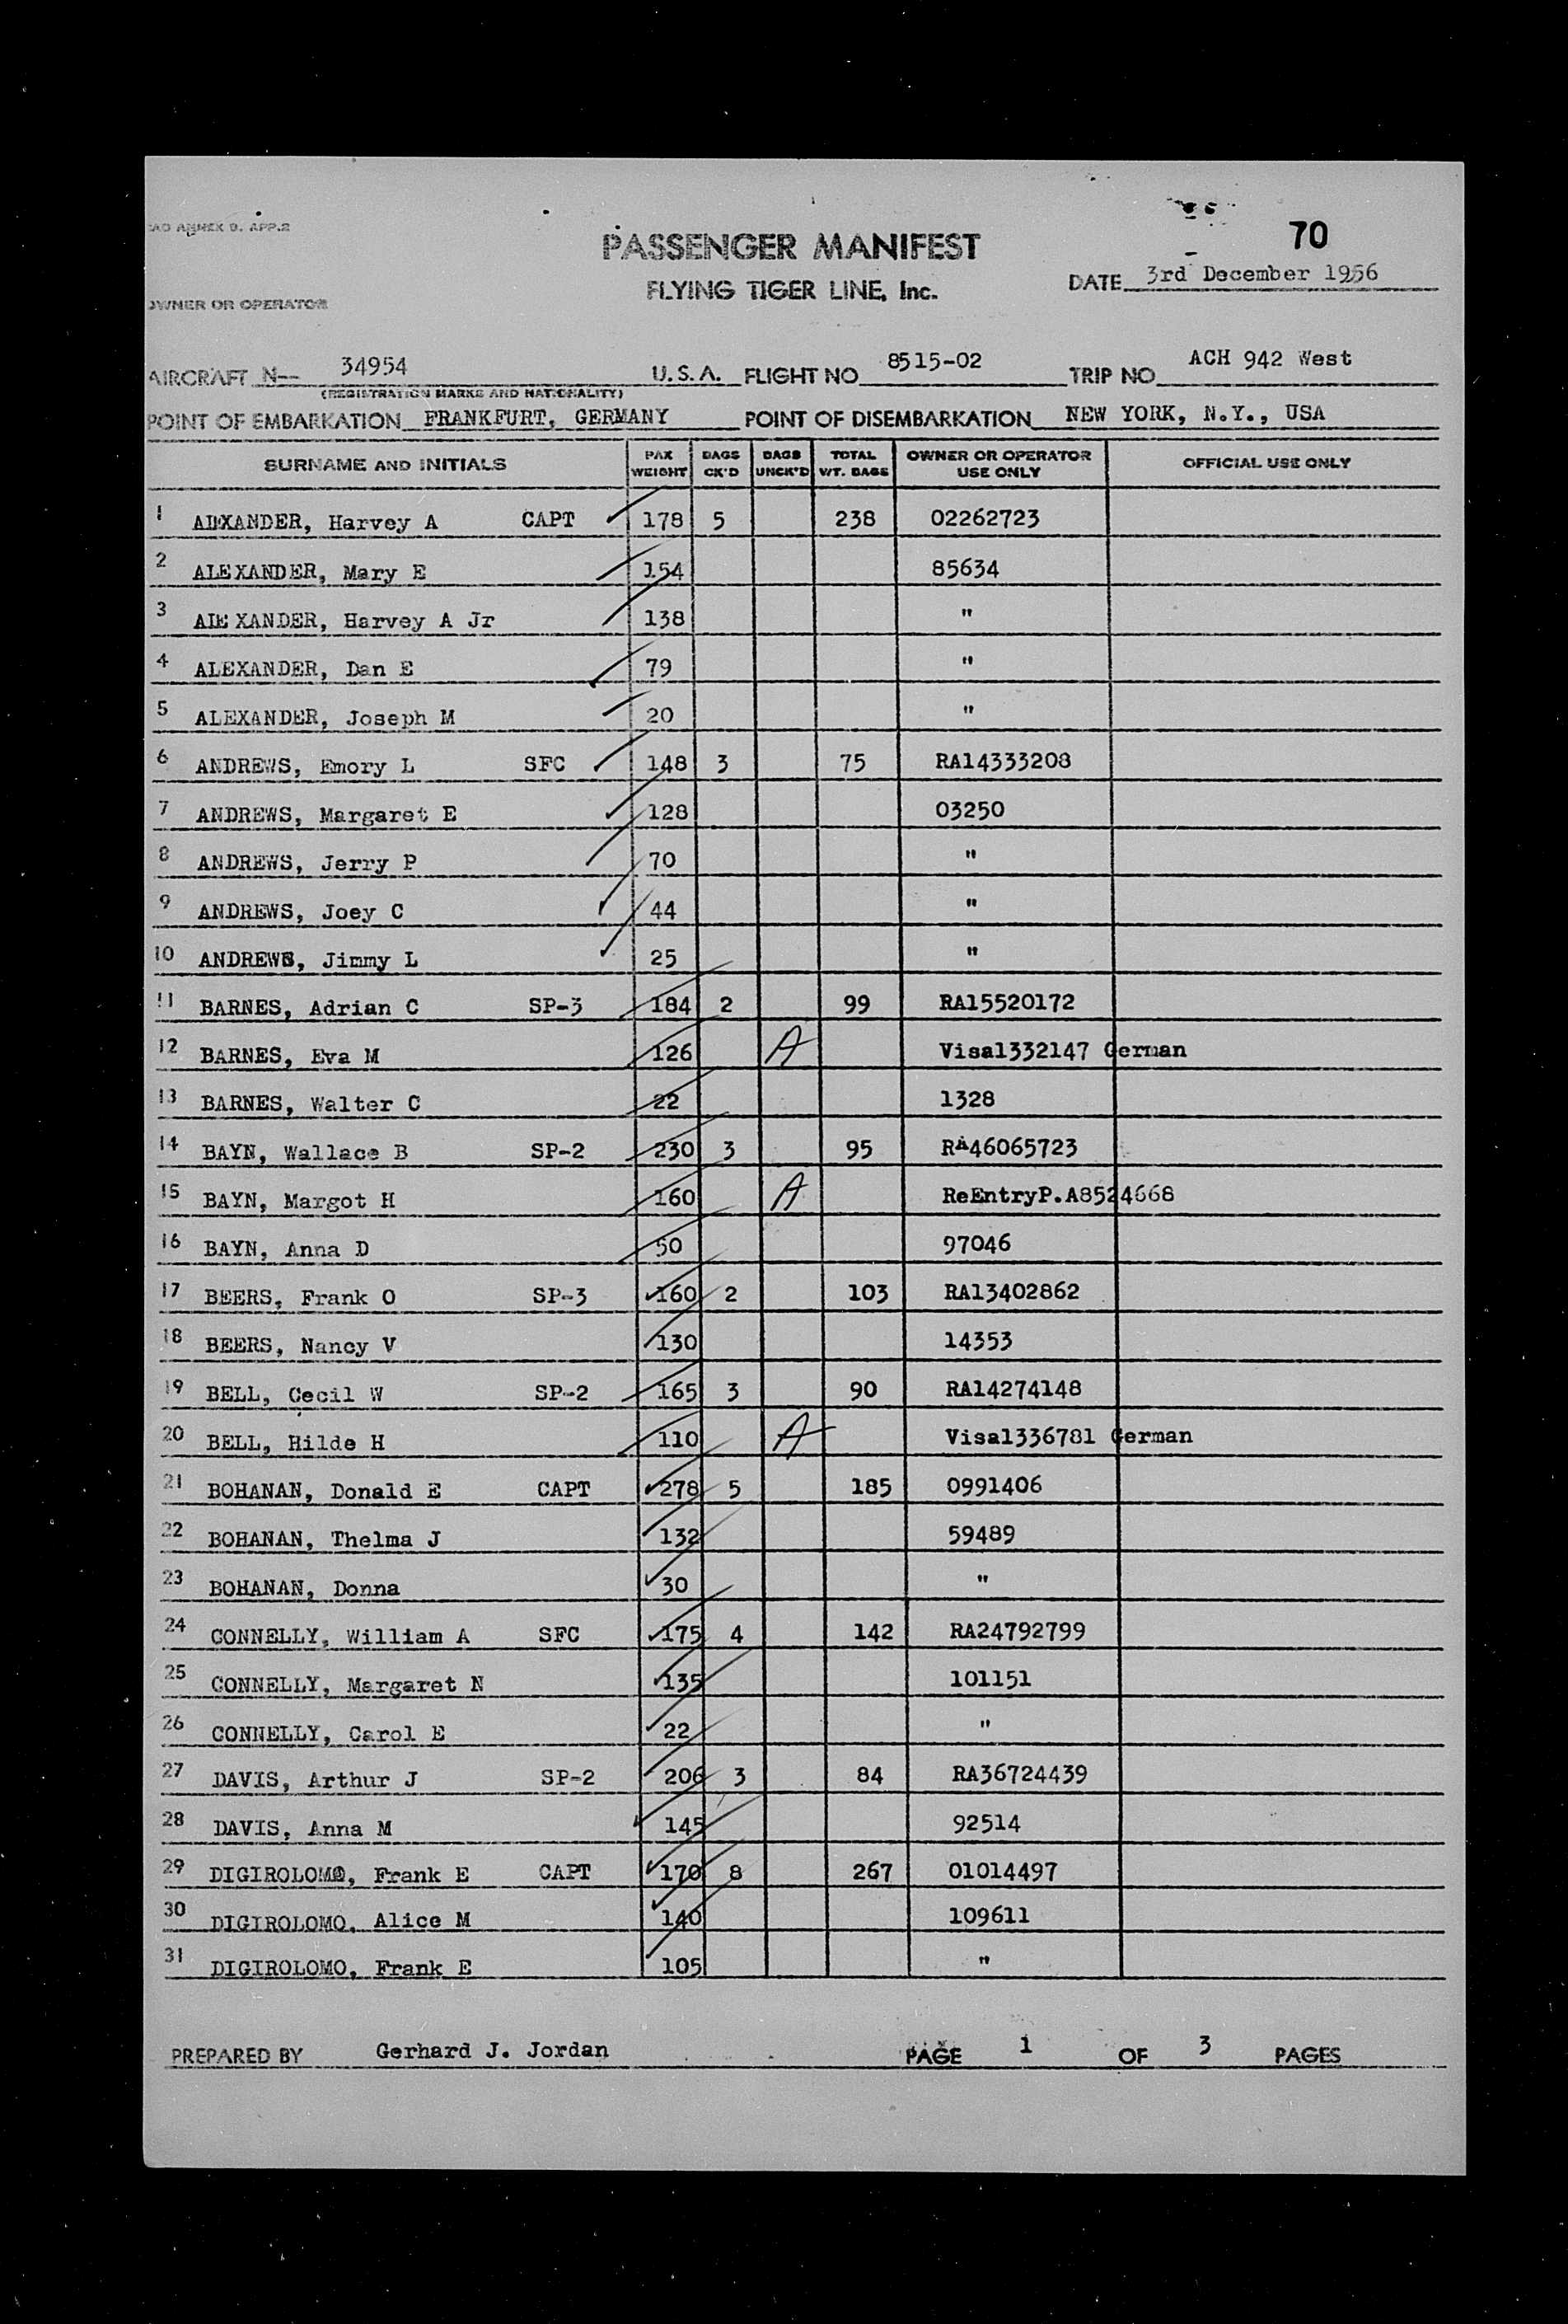 ANNEX 9. APP.2
70
PASSENGER MANIFEST
FLYING TIGER LINE, Inc.
DATE 3rd December 1956
OWNER OR OPERATOR
AIRCRAFT N-- 34954 U.S.A. FLIGHT NO 8515-02 TRIP NO ACH 942 West
(REGISTRATION MARKS AND NATIONALITY)
POINT OF EMBARKATION FRANKFURT, GERMANY POINT OF DISEMBARKATION NEW YORK, N.Y., USA
SURNAME AND INITIALS PAX WEIGHT BAGS CK'D BAGS UNCK'D TOTAL WT. BAGS OWNER OR OPERATOR USE ONLY OFFICIAL USE ONLY
1 ALEXANDER, Harvey A CAPT 178 5 238 02262723
2 ALEXANDER, Mary E 154 85634
3 ALEXANDER, Harvey A Jr 138 "
4 ALEXANDER, Dan E 79 "
5 ALEXANDER, Joseph M 20 "
6 ANDREWS, Emory L SFC 148 3 75 RA14333208
7 ANDREWS, Margaret E 128 03250
8 ANDREWS, Jerry P 70 "
9 ANDREWS, Joey C 44 "
10 ANDREWS, Jimmy L 25 "
11 BARNES, Adrian C SP-3 184 2 99 RA15520172
12 BARNES, Eva M 126 A Visa1332147 German
13 BARNES, Walter C 22 1328
14 BAYN, Wallace B SP-2 230 3 95 RA46065723
15 BAYN, Margot H 160 A ReEntryP.A8524668
16 BAYN, Anna D 50 97046
17 BEERS, Frank O SP-3 160 2 103 RA13402862
18 BEERS, Nancy V 130 14353
19 BELL, Cecil W SP-2 165 3 90 RA14274148
20 BELL, Hilde H 110 A Visa1336781 German
21 BOHANAN, Donald E CAPT 278 5 185 0991406
22 BOHANAN, Thelma J 132 59489
23 BOHANAN, Donna 30 "
24 CONNELLY, William A SFC 175 4 142 RA24792799
25 CONNELLY, Margaret N 135 101151
26 CONNELLY, Carol E 22 "
27 DAVIS, Arthur J SP-2 206 3 84 RA36724439
28 DAVIS, Anna M 145 92514
29 DIGIROLOMO, Frank E CAPT 170 8 267 01014497
30 DIGIROLOMO, Alice M 140 109611
31 DIGIROLOMO, Frank E 105 "
PREPARED BY Gerhard J. Jordan PAGE 1 OF 3 PAGES